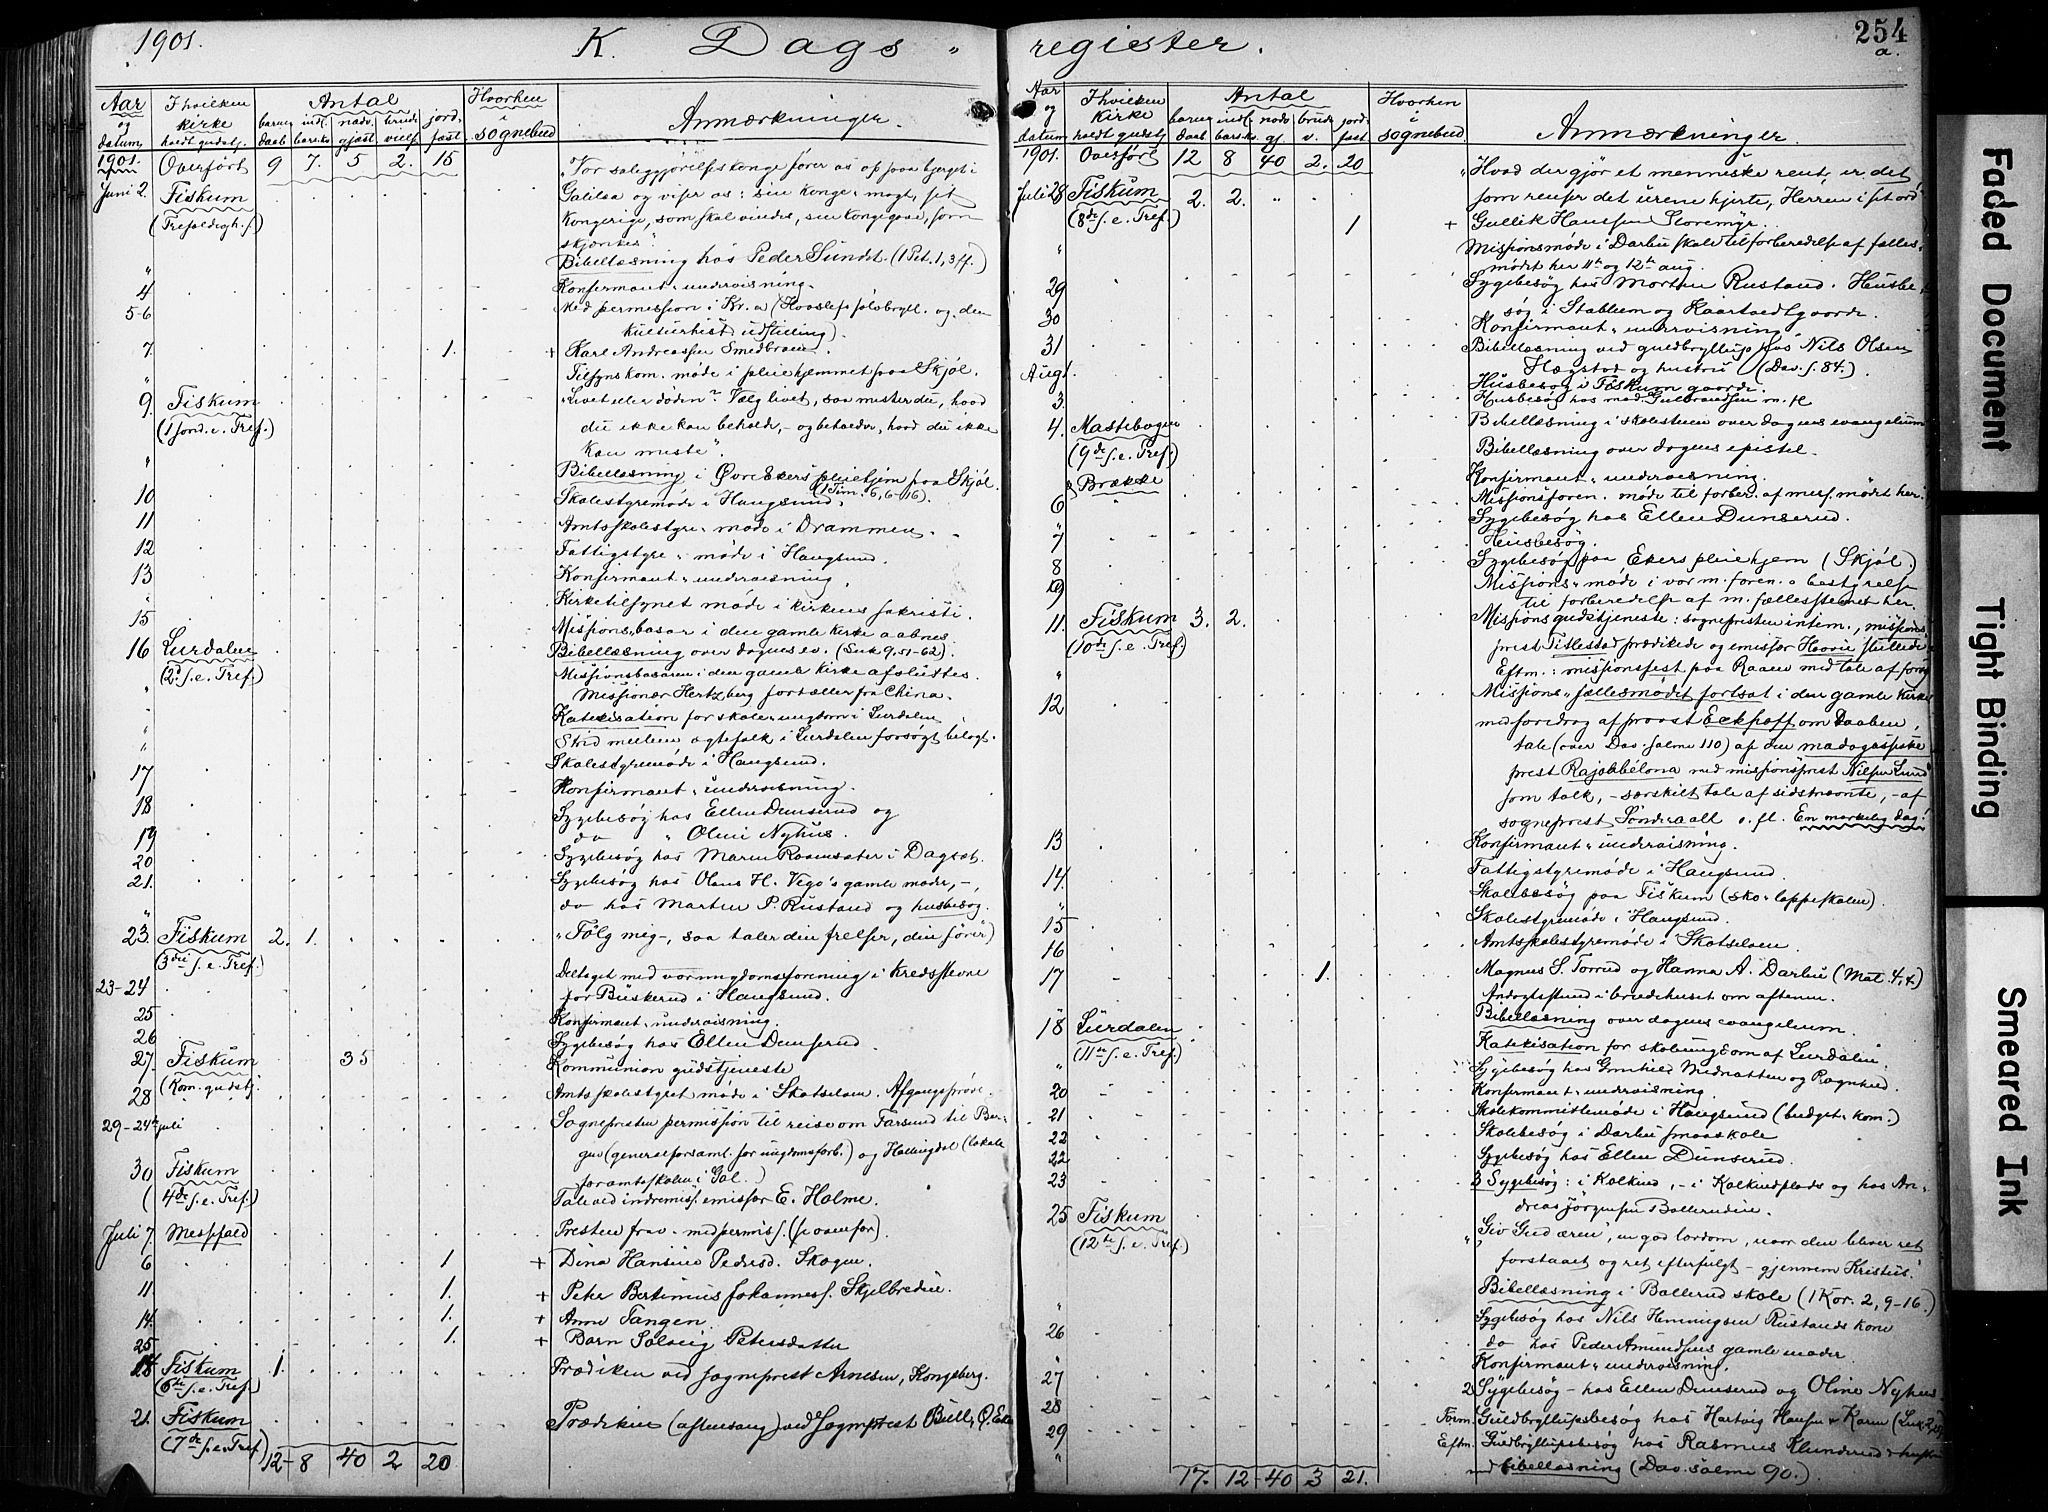 1901. K. Dags-
Aar og datum
I hvilken kirke holdt gudstj.
Antal
barnedaab indl. barselk. nadv. gjæst. brude vielf. jord. fæst.
Hvorhen i sognebud
Anmærkninger.
1901. Overført 9 7. 5 2. 15
Juni 2. Fiskum
(Trefoldigh. f.)
Galilæa og viser os: sin konge-magt, sit
kongerige, som skal vindes, sin kongegave, som
skjænkes".
" Bibellæsning hos Peder Sundt. (1 Pet. 1,3ff.)
4 Konfirmant-undervisning.
5-6 Med permission i Kr.a
kulturhist. udstilling).
7. 1. + Karl Andreassen
" Tilsynskom. møde i pleiehjemmet paa Skjøl.
9. Fiskum "Livet eller døden? Vælg livet, saa mister du, hvad
(1 sønd. e. Tref.) du ikke kan beholde, - og beholder, hvad du ikke
kan miste".
" Bibellæsning i Øvre Ekers pleiehjem paa Skjøl.
(1 Tim. 6,6-16).
10 Skolestyremøde i Haugsund.
11 Amtsskolestyre-møde i Drammen.
12 Fattigstyre-møde i Haugsund.
13 Konfirmant-undervisning.
" Kirketilsynet møde i kirkens sakristi.
15 Missions-basar i den gamle kirke aabnes.
16 Lurdalen Bibellæsning over dagens ev. (Luk 9,51-62).
(2d. s. e. Tref.) Missionsbasaren i den gamle kirke afsluttes.
" Missionær Hertzberg fortæller fra China.
" Katekisation for skole-ungdom i Lurdalen
" Strid mellem ægtefolk i Lurdalen forsøgt bilagt.
17 Skolestyremøde i Haugsund.
18 Konfirmant-undervisning.
19 Sygebesøg hos Ellen Dunserud og
do " Oline Nyhus.
20 Sygebesøg hos Maren
21. Sygebesøg hos Olaus H. Vego's gamle moder, -,
" do hos Morten P. Rustand og husbesøg.
23. Fiskum 2. 1. "Følg mig-, saa taler din frelser, din fører)
(3die s. e. Tref.)
23-24 Deltaget med vor ungdomsforening i kredsstevne
for Buskerud i Haugsund.
25 Konfirmant-undervisning.
26 Sygebesøg hos Ellen Dunserud.
27. Fiskum 35 Kommunion gudstjeneste
(Kom. gudstj.
28 Amtsskolestyret møde i Skotselven. Afgangsprøve.
29-24de juli Sognepresten permission til reise om Farsund til Ber-
gen (generalforsaml. for ungdomsforb.) og Hallingdal (lokale
for amtsskolen i Gol.)
30 Fiskum Tale ved indremiss. emissær E. Holme.
(4de s. e. Tref.)
Juli 7. Messfald Presten frav. med permiss. (se ovenfor).
6 1 + Dina Hansine Pedersd. Skogen.
11 1. + Peter Bertinius Johanness. Skjelbredeie.
14. 1. + Anne Tangen.
25 1. + Barn Solveig Petersdatter
14 Fiskum 1. Prædiken ved sogneprest Arnesen, Kongsberg.
(6te s. e. Tref.)
21. Fiskum Prædiken (aftensang) ved sogneprest Bull, Ø. Eker
(7de s. e. Tref.)
12-8 40 2 20
register. 254 a.
Aar og datum
I hvilken kirke holdt gudstj.
Antal
barnedaab indl. barsk. nadv. gj. brude v. jord. fæst.
Hvorhen i sognebud
Anmærkninger.
1901. Overført 12 8 40 2. 20
Juli 28 Fiskum 2. 2. "Hvad der gjør et menneske rent, er det,
(8de s. e. Tref.) som renser det urene hjerte, Herren i sit ord"
1 + Gullik Hanssen Storemyr.
" Missionsmøde i Darbu skole til forberedelse af fælles-
mødet her 11te og 12te aug.
29 Sygebesøg hos Morten Rustand. Husbe-
søg i Stablum og
30 Konfirmant-undervisning.
31 Bibellæsning ved guldbryllup hos Nils Olsen
Hægstad og hustru (Dav. s. 84.).
Aug 1. Husbesøg i Fiskum gaarde.
3. Husbesøg hos mad. Gulbrandsen m. fl
4. Mastebogen Bibellæsning i skolestuen over dagens evangelium
(9de s. e. Tref.) Bibellæsning over dagens epistel.
& Brække
6 Konfirmant-undervisning.
" Missionsforen. møde til forber. af miss. mødet her.
7 Sygebesøg hos Ellen Dunserud.
8 Husbesøg.
9 Sygebesøg paa Ekers pleiehjem (Skjøl.)
10 Missions-møde i vor m. foren.s bestyrelse
til forberedelse af m. fællesstevnet her.
11. Fiskum 3. 2. Missionsgudstjeneste: sognepresten intem., missions-
(10de s. e. Tref.) prest Titlestad prædikede og emissær
" Eftm.: missionsfest paa Raaen med tale af
12 Missions-fællesmødet fortsat i den gamle kirke
med foredrag af provst Eckhoff om Daaben,
tale (over Dav. salme 110) af den madagassiske
prest Rajobbélona med missionsprest Nilsen Lund
som tolk, - særskilt tale af sidstnævnte, - af
sogneprest Sönderaal o. fl. En mærkelig dag!
13 Konfirmant-undervisning.
14. Fattigstyremøde i Haugsund.
" Skolebesøg paa Fiskum
15 Skolestyremøde i Haugsund.
16 Amtsskolestyremøde i Skotselven.
17 1. Magnus S. Torrud og Hanna A. Darbu (Mat. 4,4.)
Andagtsstund i brudehuset om aftenen.
18 Lurdalen Bibellæsning over dagens evangelium.
(11te s. e. Tref.) Katekisation for skoleungdom af Lurdalen
" Sygebesøg hos Gunhild Midnatten og Ragnhild.
20 Konfirmant-undervisning.
21 Skolekommissionmøde i Haugsund (budget-kom.)
22 Skolebesøg i Darbu smaaskole
22 Sygebesøg hos Ellen Dunserud.
23 3 Sygebesøg: i Kolkind, - i Kolkindplads og hos An-
dreas Jørgensen Ballerudeie.
25 Fiskum "Giv Gud æren", en god lærdom, naar den bliver ret
(12te s. e. Tref.) forstaaet og ret efterfulgt - gjennem Kristus.
" Bibellæsning i Ballerud skole (1 Kor. 2, 9-16.)
26 Sygebesøg hos Nils Henningsen Rustands kone
" do hos Peder Amundsens gamle moder
27 Konfirmant-undervisning.
28 2 Sygebesøg - hos Ellen Dunserud og Oline Nyhus
29 Form. Guldbryllupsbesøg hos Hartvig Hansen & Karen
" Eftm. Guldbryllupsbesøg hos Rasmus Klunderud &
med bibellæsning (Dav. salme 90.)
17. 12-40 3 21.
Faded Document
Tight Binding
Smeared Ink